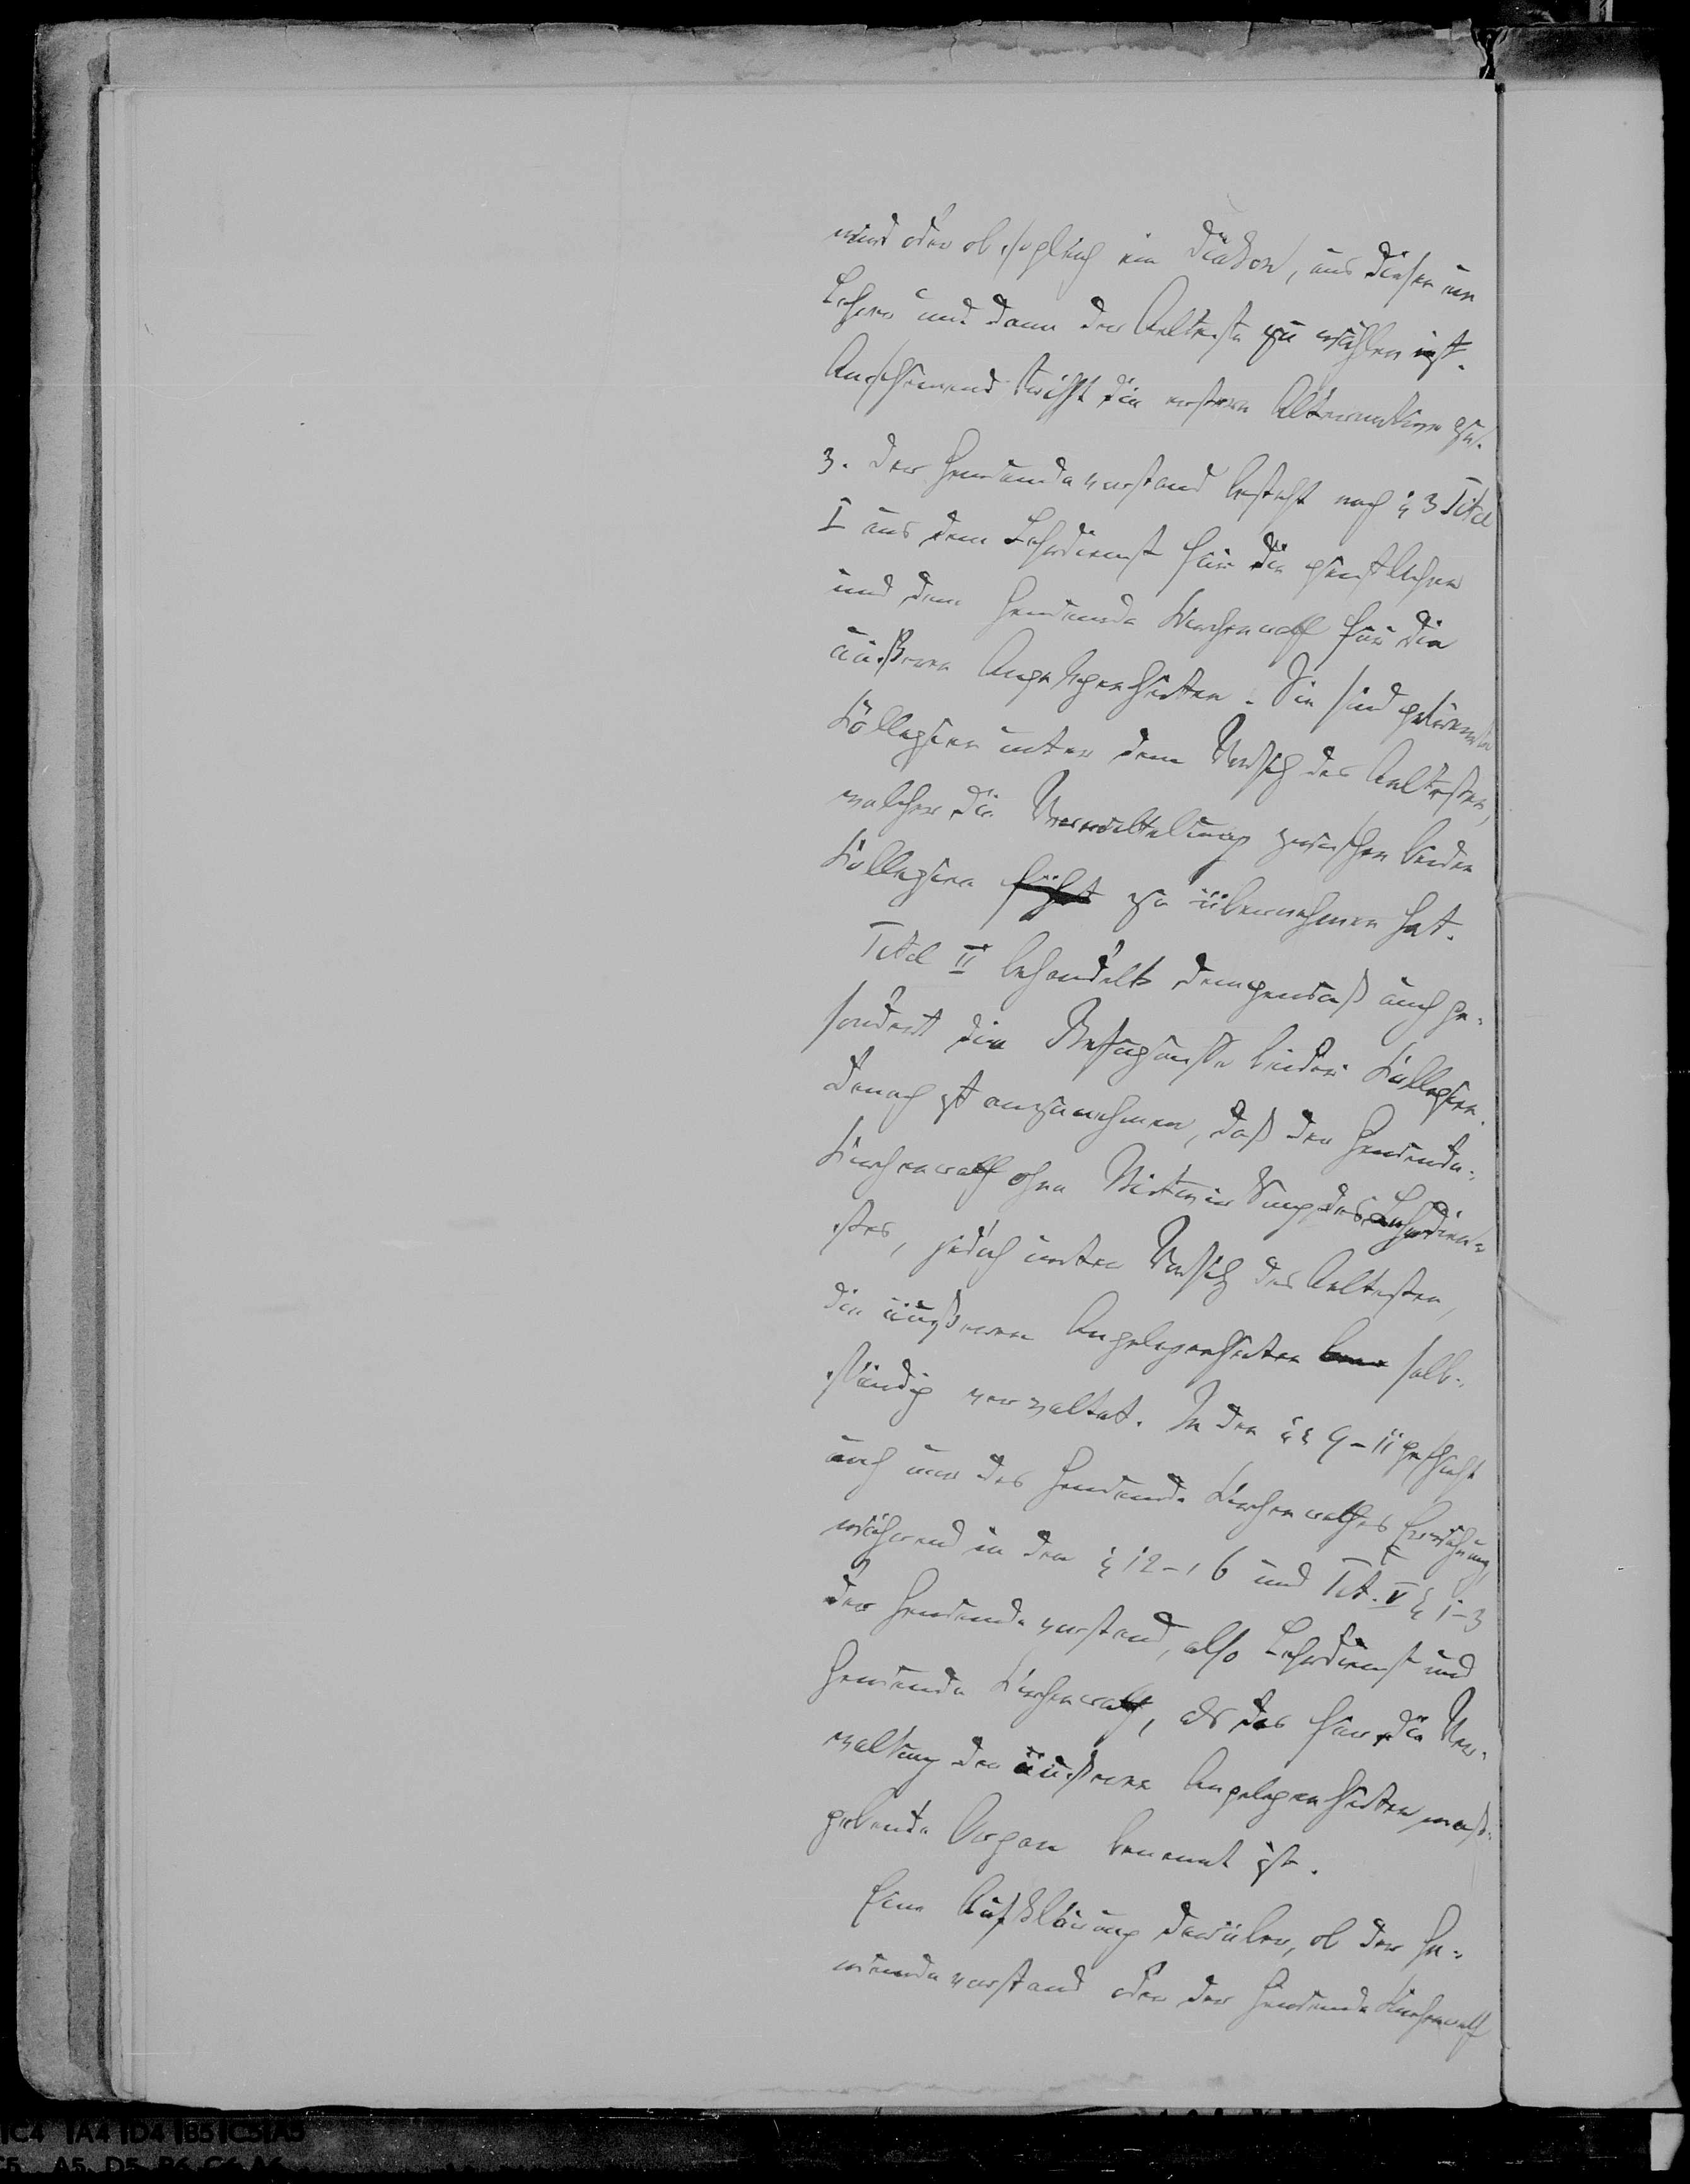 wird oder ob sogleich ein Diakon, aus diesen ein
Lehrer und dann der Aelteste zu wählen ist.
Anscheinend trifft die erstere Alternative zu.
3. Der Gemeindevorstand besteht nach § 3 Titel
I aus dem Lehrdienst für die geistlichen
und dem Gemeinde Kirchenrath für die
äußeren Angelegenheiten. Sie sind getrennte
Kollegien unter dem Vorsitz des Aeltesten,
welcher die Vermittelung zwischen beiden
Kollegien führt zu übernehmen hat.
Titel II behandelt demgemäß auch ge-
sondert die Befugnisse beider Kollegien.
Danach ist anzunehmen, daß der Gemeinde-
Kirchenrath ohne Mitwirkung des Lehrdien-
stes, jedoch unter Vorsitz des Aeltesten,
die äußeren Angelegenheiten selb-
ständig verwaltet. In den §§ 9-11 geschieht
auch nur des Gemeinde Kirchenrathes Erwähnung,
während in den § 12-16 und Tit. V § 1-3
der Gemeindevorstand, also Lehrdienst und
Gemeinde Kirchenrath, als das für die Ver-
waltung der äußeren Angelegenheiten maß-
gebende Organ benannt ist.
Eine Aufklärung darüber, ob der Ge-
meindevorstand oder der Gemeinde Kirchenrath